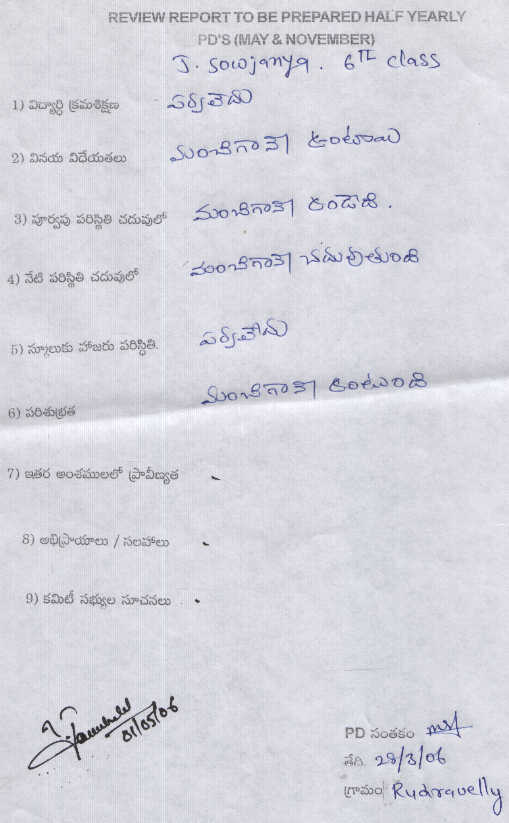 REVIEW REPORT TO BE PREPARED HALF YEARLY
PD'S (MAY & NOVEMBER)
J. sowjanya. 6TH class
1) విద్యార్థి క్రమశిక్షణ పర్వలేదు
2) వినయ విధేయతలు మంచిగానే ఉంటాయి
3) పూర్వపు పరిస్థితి చదువులో మంచిగానే ఉండేది.
4) నేటి పరిస్థితి చదువులో మంచిగానే చదువుతుంది
5) స్కూలుకు హాజరు పరిస్థితి. పర్వలేదు
6) పరిశుభ్రత మంచిగానే ఉంటుంది
7) ఇతర అంశములలో ప్రావీణ్యత -
8) అభిప్రాయాలు / సలహాలు -
9) కమిటీ సభ్యుల సూచనలు -
01/05/06
PD సంతకం
తేది. 28/3/06
గ్రామం Rudravelly